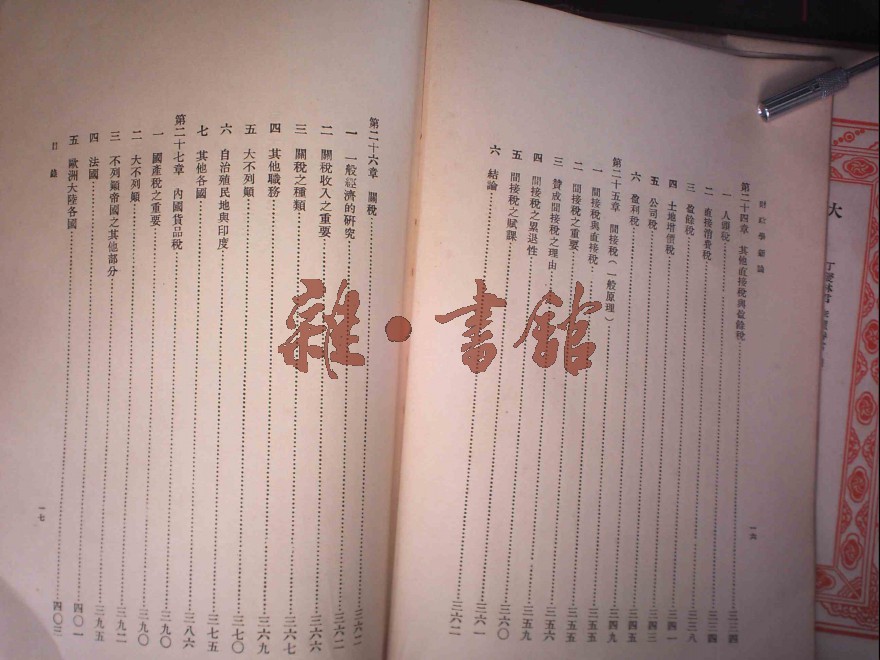 財政學新論
第二十四章 其他直接稅與盈餘稅……三三四
一 人頭稅……三三四
二 直接消費稅……三三八
三 盈餘稅……三四一
四 土地增價稅……三四三
五 公司稅……三四五
六 盈利稅……三四九
第二十五章 間接稅(一般原理)……三五五
一 間接稅與直接稅……三五五
二 間接稅之重要……三五六
三 贊成間接稅之理由……三五九
四 間接稅之累退性……三六〇
五 間接稅之賦課……三六一
六 結論……三六二
一六
第二十六章 關稅……三六二
一 一般經濟的研究……三六二
二 關稅收入之重要……三六六
三 關稅之種類……三六七
四 其他職務……三六九
五 大不列顛……三七〇
六 自治殖民地與印度……三七五
七 其他各國……三八六
第二十七章 內國貨品稅……三九〇
一 國產稅之重要……三九〇
二 大不列顛……三九二
三 不列顛帝國之其他部分……三九五
四 法國……四〇一
五 歐洲大陸各國……四〇三
目錄
一七
大
雜·書館